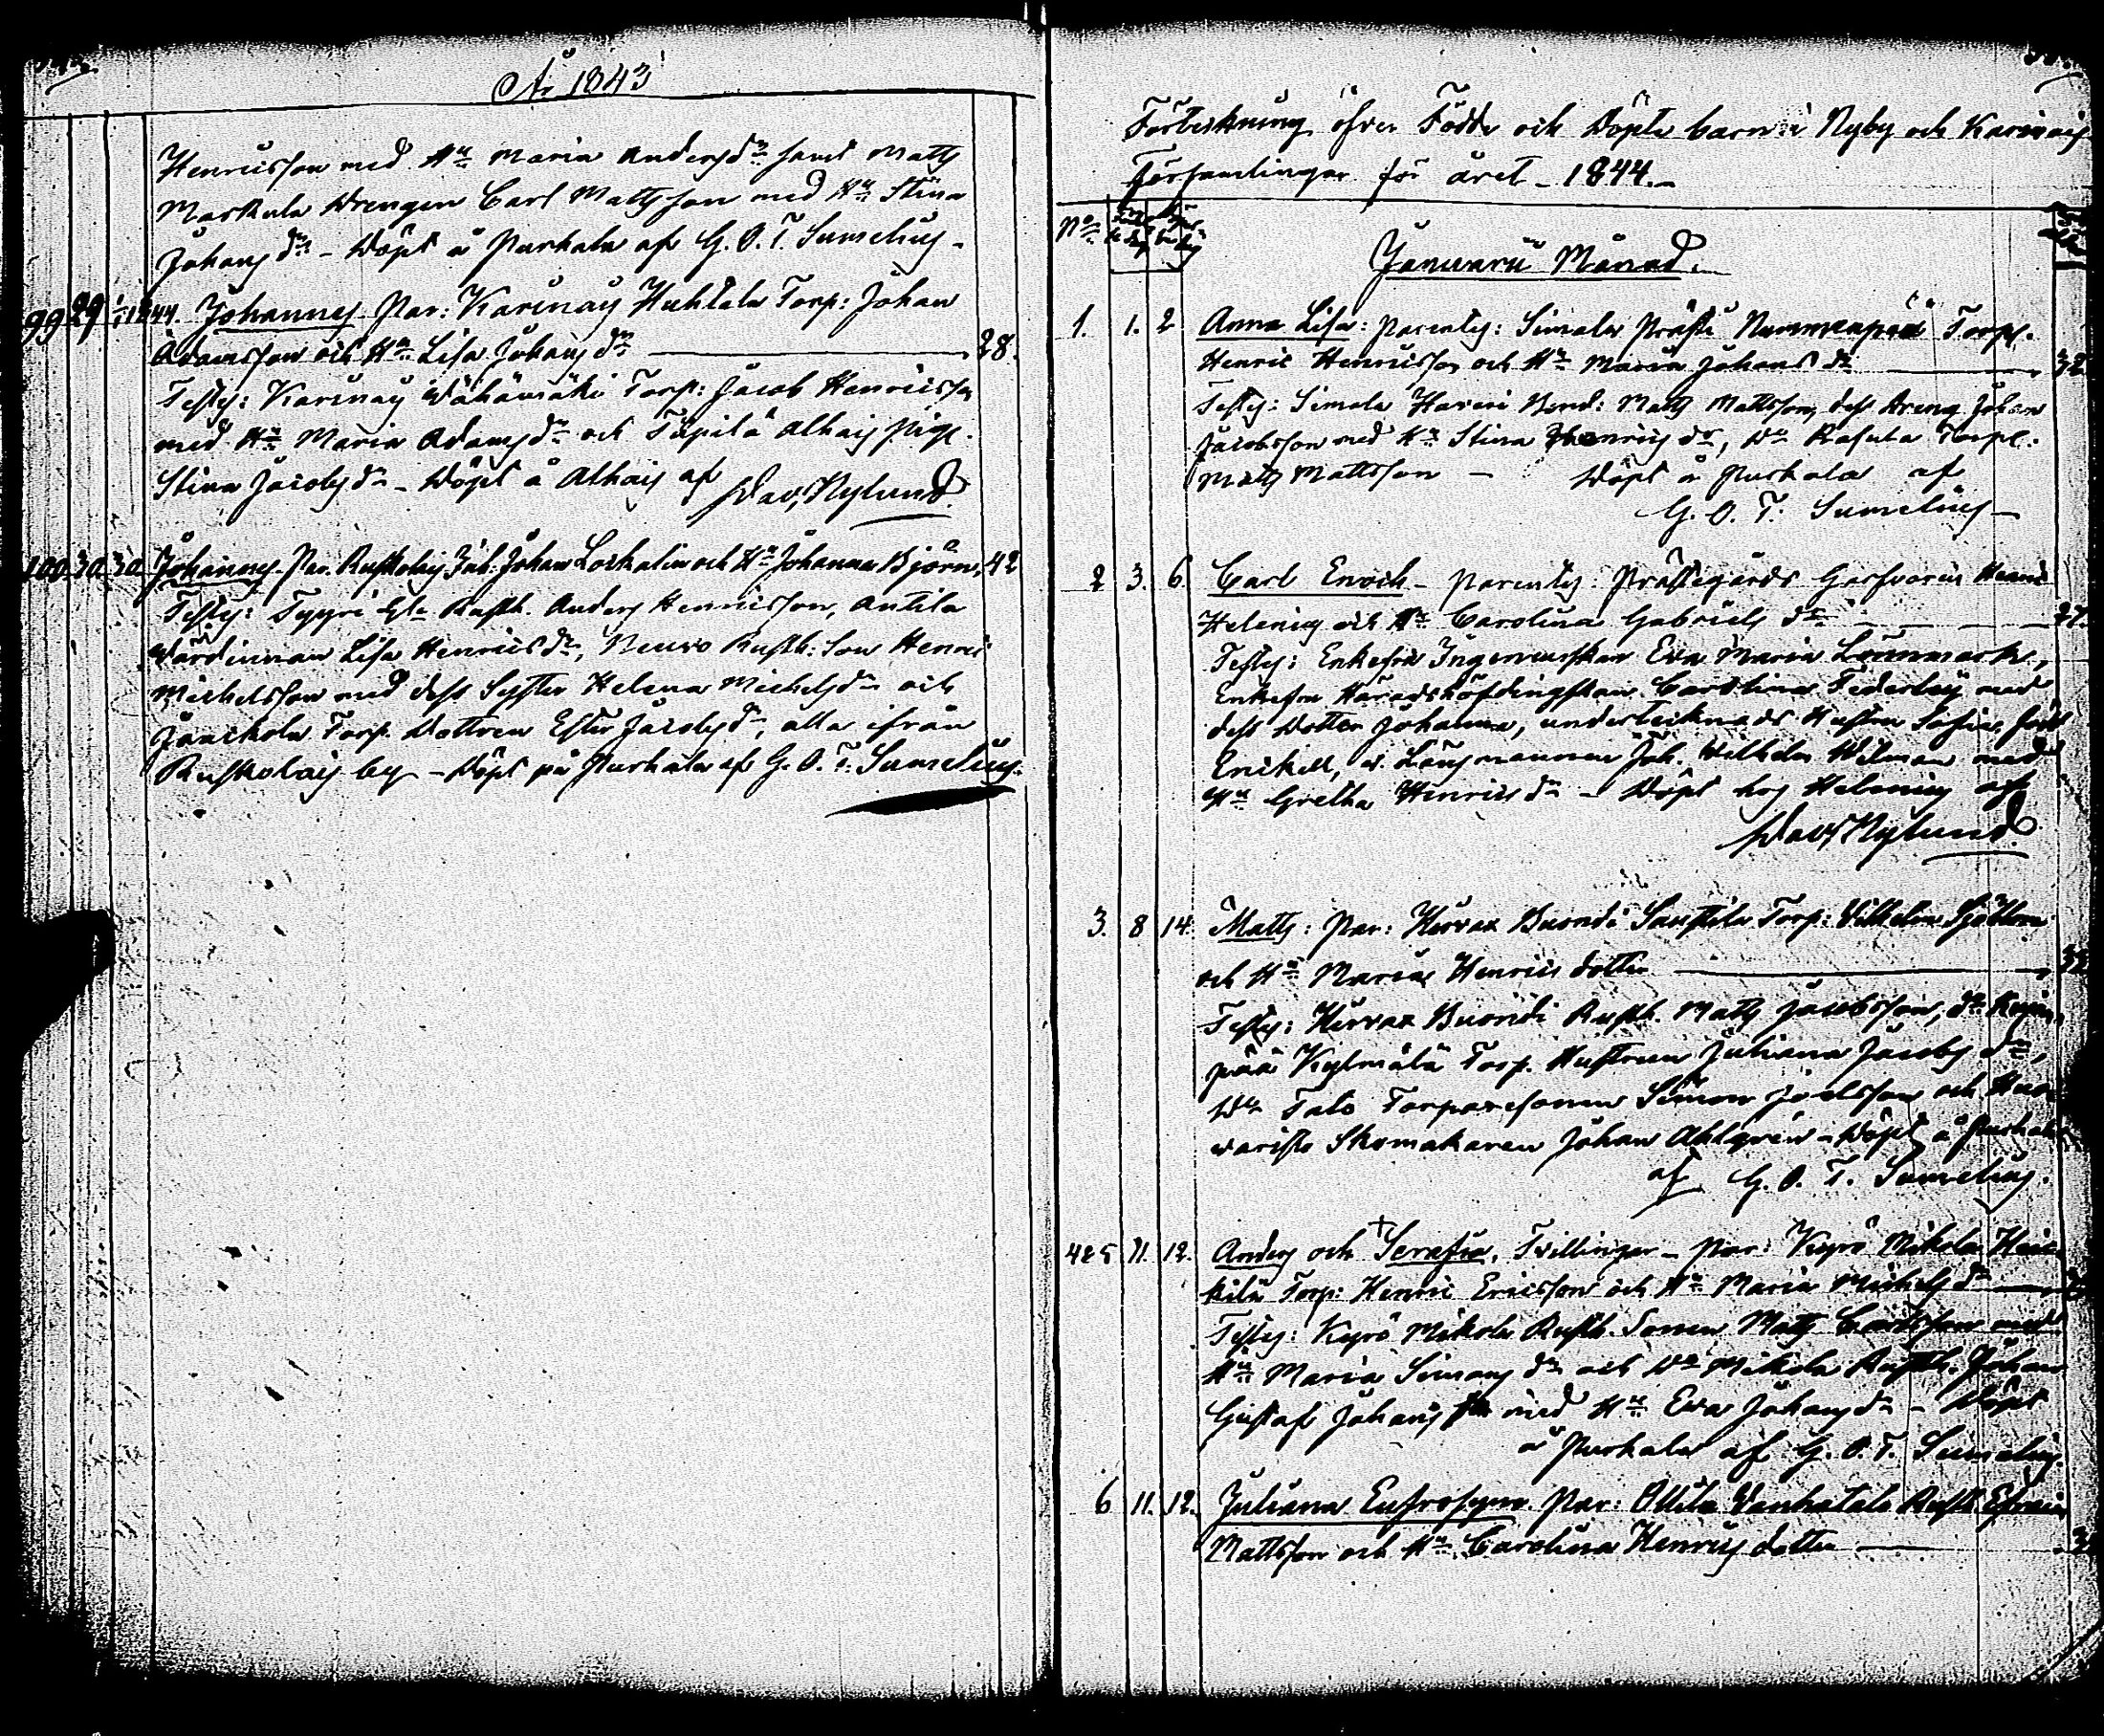 År 1843
Henricsson med Hu Maria Andersdr samt Matts
Markula Drengen Carl Mattsson med Hu Stina
Johansdr - Döpt å Purkala af G. O. T. Sumelius -
99 29 1/1 1844. Johannes Par: Karinais Huhtala Torp: Johan
Adamsson och Hu Lisa Johansdr 28.
Testes: Karinais Wähämäki Torp: Jacob Henricsson
med Hu Maria Adamsdr och Tapila Alhais pige.
Stina Jacobsdr - Döpt å Alhais af
Dav. Nylund
100 30 30 Johannes. Par. Ruskolais Inh: Johan Lockalin och Hu Johanna Björn. 42
Testes: Tyyri Rusth. Anders Henricsson, Antila
Wärdinnan Lisa Henricsdr, Neuvo Rusth: Son Henric
Michelsson med dess Syster Helena Michelsdr och
Jaackola Torp. Dottren Ester Jacobsdr, alla ifrån
Ruskolais by - Döpt på Purkala af G. O. T. Sumelius.
Förteckning öfver Födde och Döpte barn i Nyby och Karinais
Församlingar för året - 1844. -
No
Januarii Månad.
1. 1. 2 Anna Lisa: parentes: Simala Prästi Nummenpää Torp.
Henric Henricsson och Hu Maria Johans dr 32
Testes: Simala Haveri Bond: Matts Mattsson, dess Dreng Johan
Jacobsson med Hu Stina Henricsdr, Do Rasula Torp.
Matts Mattsson - Döpt å Purkala af
G. O. T. Sumelius -
2 3. 6. Carl Enoch - parentes: Prästegårds Garfvaren Henric
Helenius och Hu Carolina Gabriels dr 27.
Testes: Enkefru Ingenieurskan Eva Maria Lönnmark,
Enkefru Häradshöfdingskan Carolina Federley med
dess Dotter Johanna, undertecknads Hustru Sofia, född
Enckell, v. Länsmannen Joh. Wilhelm Widman med
Hu Gretha Henricsdr - Döpt hos Helenius af
Dav. Nylund
3 8 14. Matts: Par: Hirvax Buondi Torp: Vilhelm Sjöblom
och Hu Maria Henrics dotter
Testes: Hirvax Buondi Rusth. Matts Jacobsson, do
pää Kylmälä Torp. Hustrun Juliana Jacobs dr,
Do Talo Torparesonen Simon Joelsson och
varisto Skomakaren Johan Ahlgren - Döpt å Purkala
af G. O. T. Sumelius.
4&5 11. 12. Anders och † Serafia, Tvillingar - Par: Kyrö Mikola Heic-
kilä Torp: Henric Ericsson och Hu Maria Michels dr
Testes: Kyrö Mikola Rusth. Sonen Matts Carlsson med
Hu Maria Simons dr och Do Mikola Rusth. Johan
Gustaf Johansson med Hu Eva Johansdr - Döpt
å Purkala af G. O. T. Sumelius.
6 11. 12. Juliana Eufrosyne. Par: Ollila Vanhatalo Rusth. Efraim
Mattsson och Hu Carolina Henrics dotter